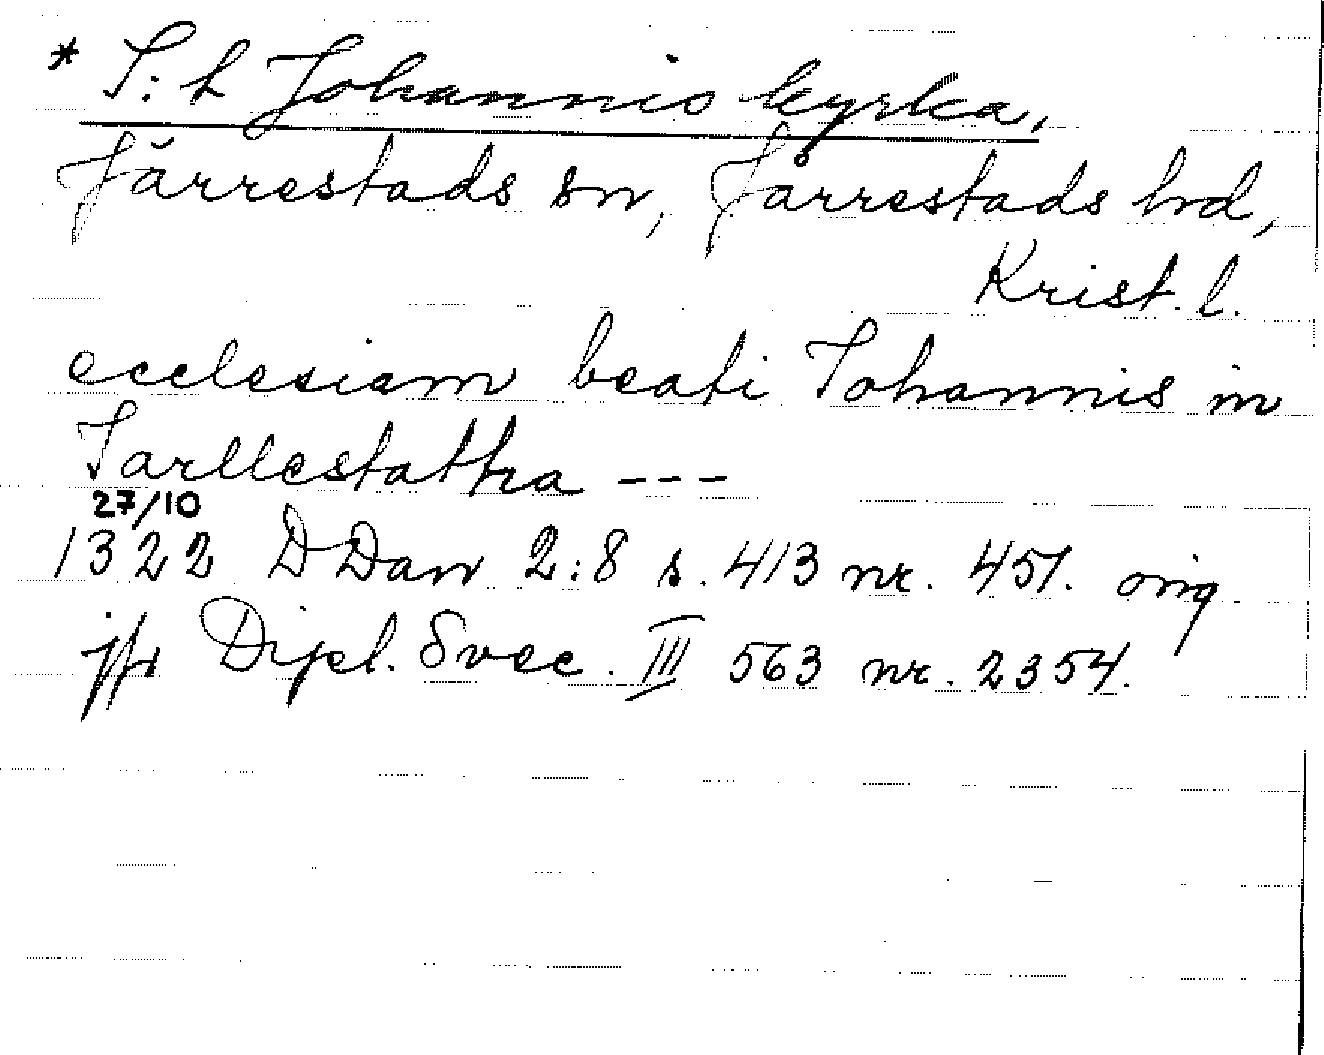 * S:t Johannis kyrka,
Järrestads sn, Järrestads hd,
Krist. l.
ecclesiam beati Johannis in
Jarllestattha ---
27/10
1322 DDan 2:8 s. 413 nr. 451. orig
jfr Dipl. Svec. III 563 nr. 2354.